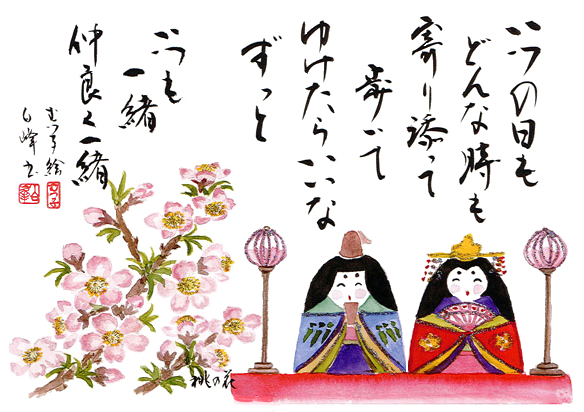 いつの日も
どんな時も
寄り添って
歩いて
ゆけたらいいな
ずっと
いつも
一緒
仲良く一緒
絵
峰
桃の花